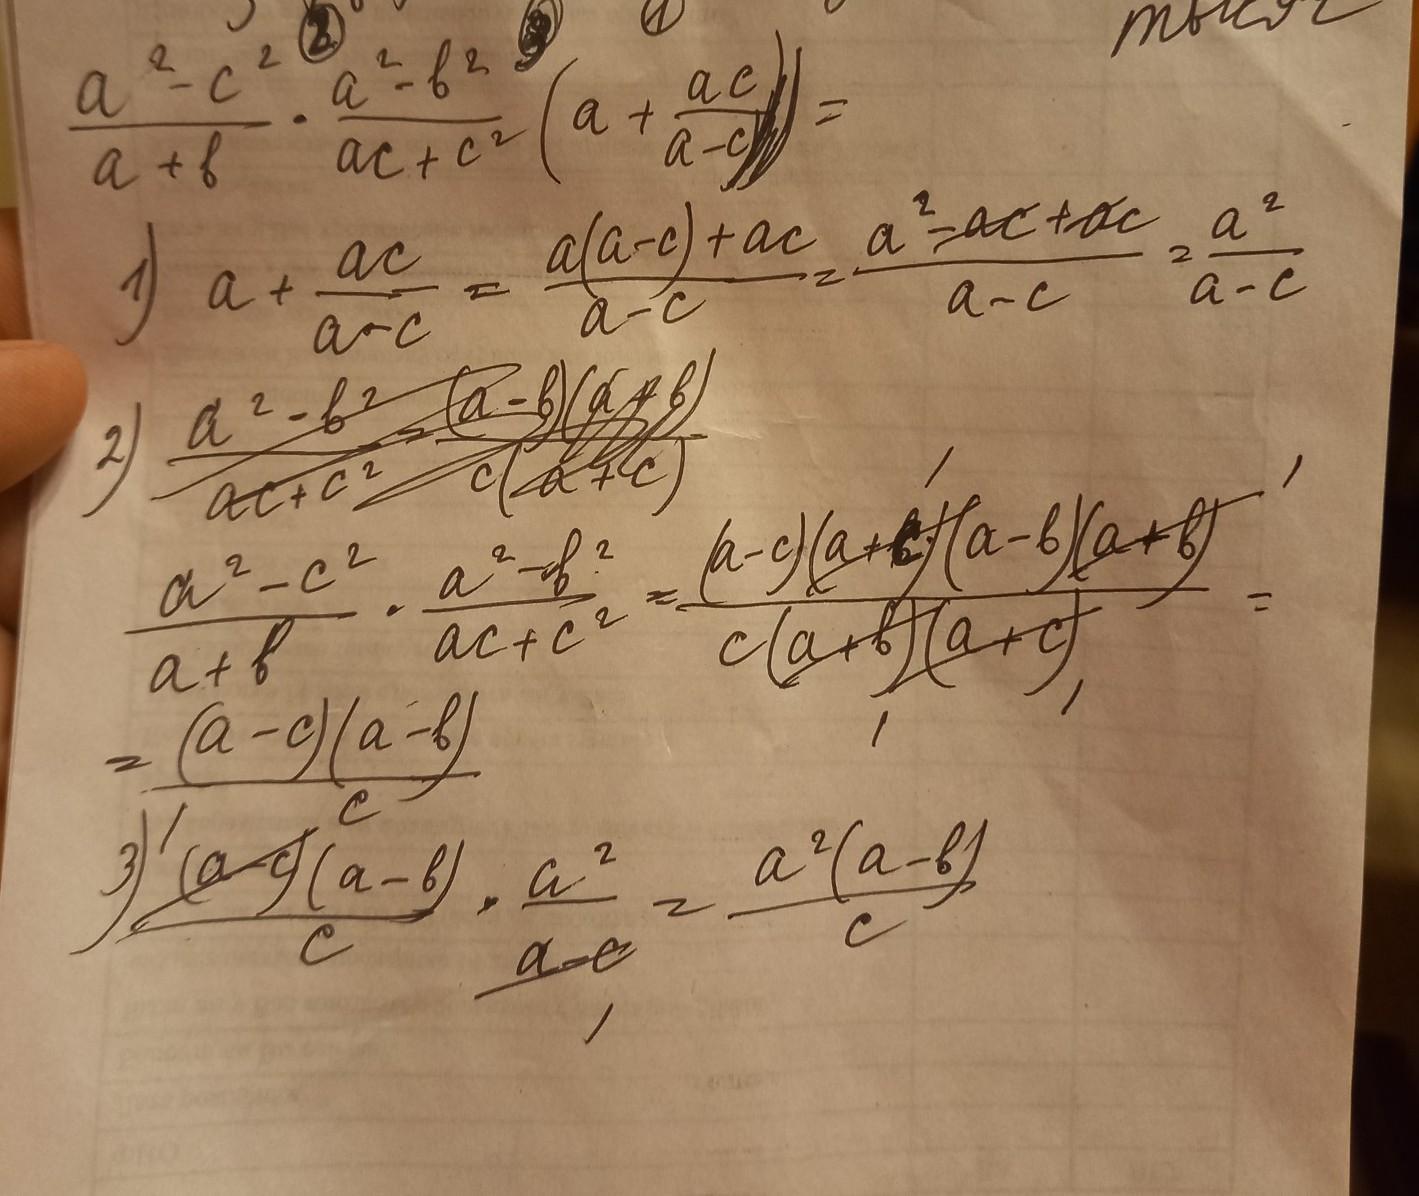 2 3 1
a² - c² / a + b · a² - b² / ac + c² (a + ac / a - c) =
1) a + ac / a - c = a(a - c) + ac / a - c = a² - ac + ac / a - c = a² / a - c
2) a² - b² / ac + c² = (a - b)(a + b) / c(a + c)
a² - c² / a + b · a² - b² / ac + c² = (a - c)(a + c)(a - b)(a + b) / c(a + b)(a + c) =
= (a - c)(a - b) / c
3) (a - c)(a - b) / c · a² / a - c = a²(a - b) / c